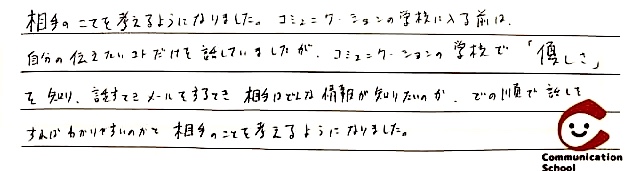 相手のことを考えるようになりました。コミュニケーションの学校に入る前は、
自分の伝えたいコトだけを話していましたが、コミュニケーションの学校で「優しさ」
を知り、話すときメールをするとき相手はどんな情報が知りたいのか、どの順で話して
すればわかりやすいのかと相手のことを考えるようになりました。
Communication
School